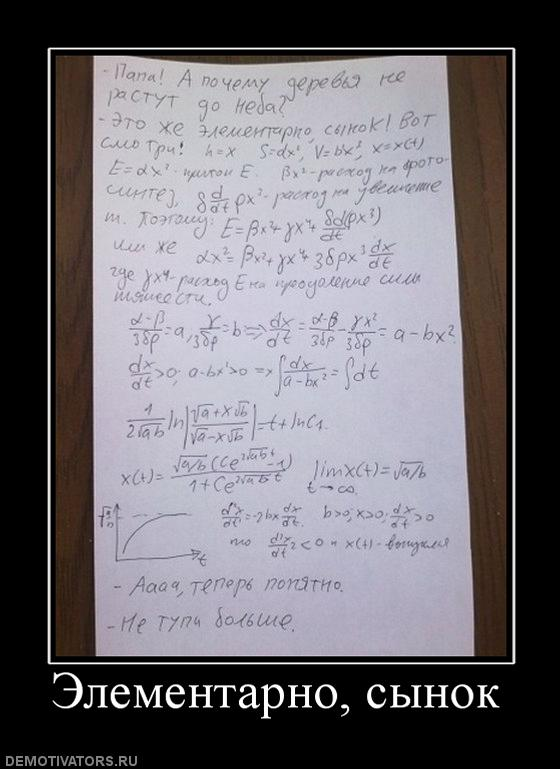 - Папа! А почему деревья не
растут до неба?
- Это же элементарно, сынок! Вот
смотри! h=x S=αx², V=bx³, x=x(t)
E=αx² - приток E. βx² - расход на фото-
синтез, δ d/dt ρx³ - расход на увеличение
m. Поэтому: E=βx²+γx⁴+δd(ρx³)/dt
или же αx²=βx²+γx⁴+3δρx³ dx/dt
где γx⁴ - расход E на преодоление силы
тяжести.
(α-β)/3δρ=a, γ/3δρ=b => dx/dt=(α-β)/3δρ - γx²/3δρ = a-bx².
dx/dt>0; a-bx²>0 => ∫dx/(a-bx²)=∫dt
1/(2√ab) ln|(√a+x√b)/(√a-x√b)|=t+lnC₁.
x(t)=√a/b(Ce^(2√ab t)-1)/(1+Ce^(2√ab t)) lim x(t)=√a/b
t→∞
√a/b d²x/dt²=-2bx dx/dt. b>0; x>0; dx/dt>0
t то d²x/dt²<0 и x(t) - выпуклая
- Аааа, теперь понятно.
- Не тупи больше.
Элементарно, сынок
DEMOTIVATORS.RU